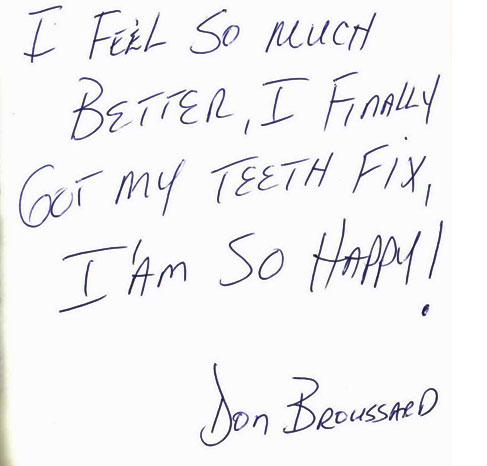 I FEEL SO MUCH
BETTER, I FINALLY
GOT MY TEETH FIX,
I'AM SO HAPPY!
Don BROUSSARD